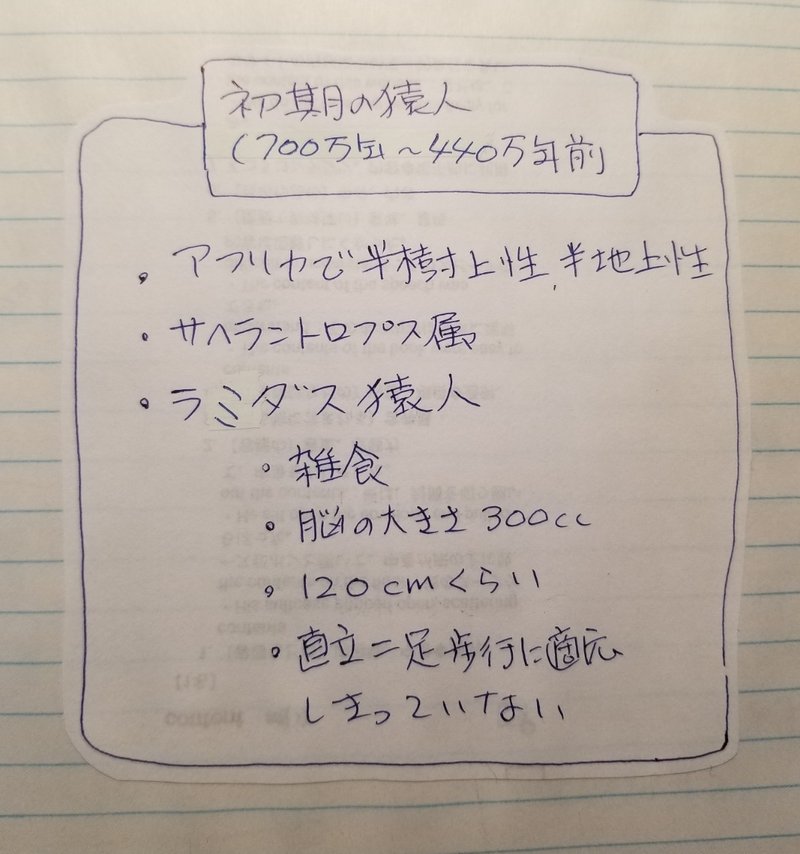 初期の猿人
(700万年~440万年前
・アフリカで半樹上性、半地上性
・サヘラントロプス属
・ラミダス猿人
・雑食
・脳の大きさ300cc
・120cmくらい
・直立二足歩行に適応
しきっていない